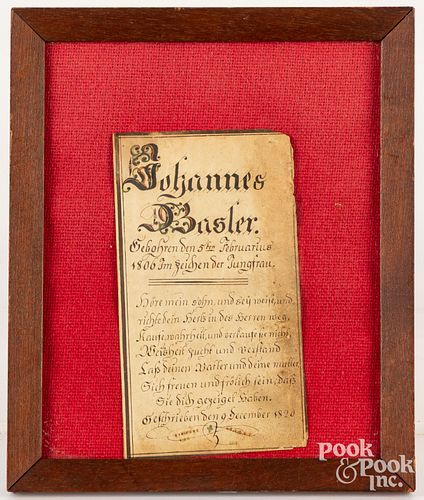 Johannes
Basler.
Gebohren den 5ten Februarius
1806 Im Zeichen der Jungfrau.
Höre mein sohn, und seÿ weise, und
richte dein Hertz in des Herren weg,
Kaufe wahrheit, und verkaufe sie nicht,
Weisheit zucht und verstand
Laß deinen Vatter und deine mutter
Sich freuen und frölich sein, das
Sie dich gezeiget haben.
Geschrieben den 9 December 1820
POOK
& POOK
INC.